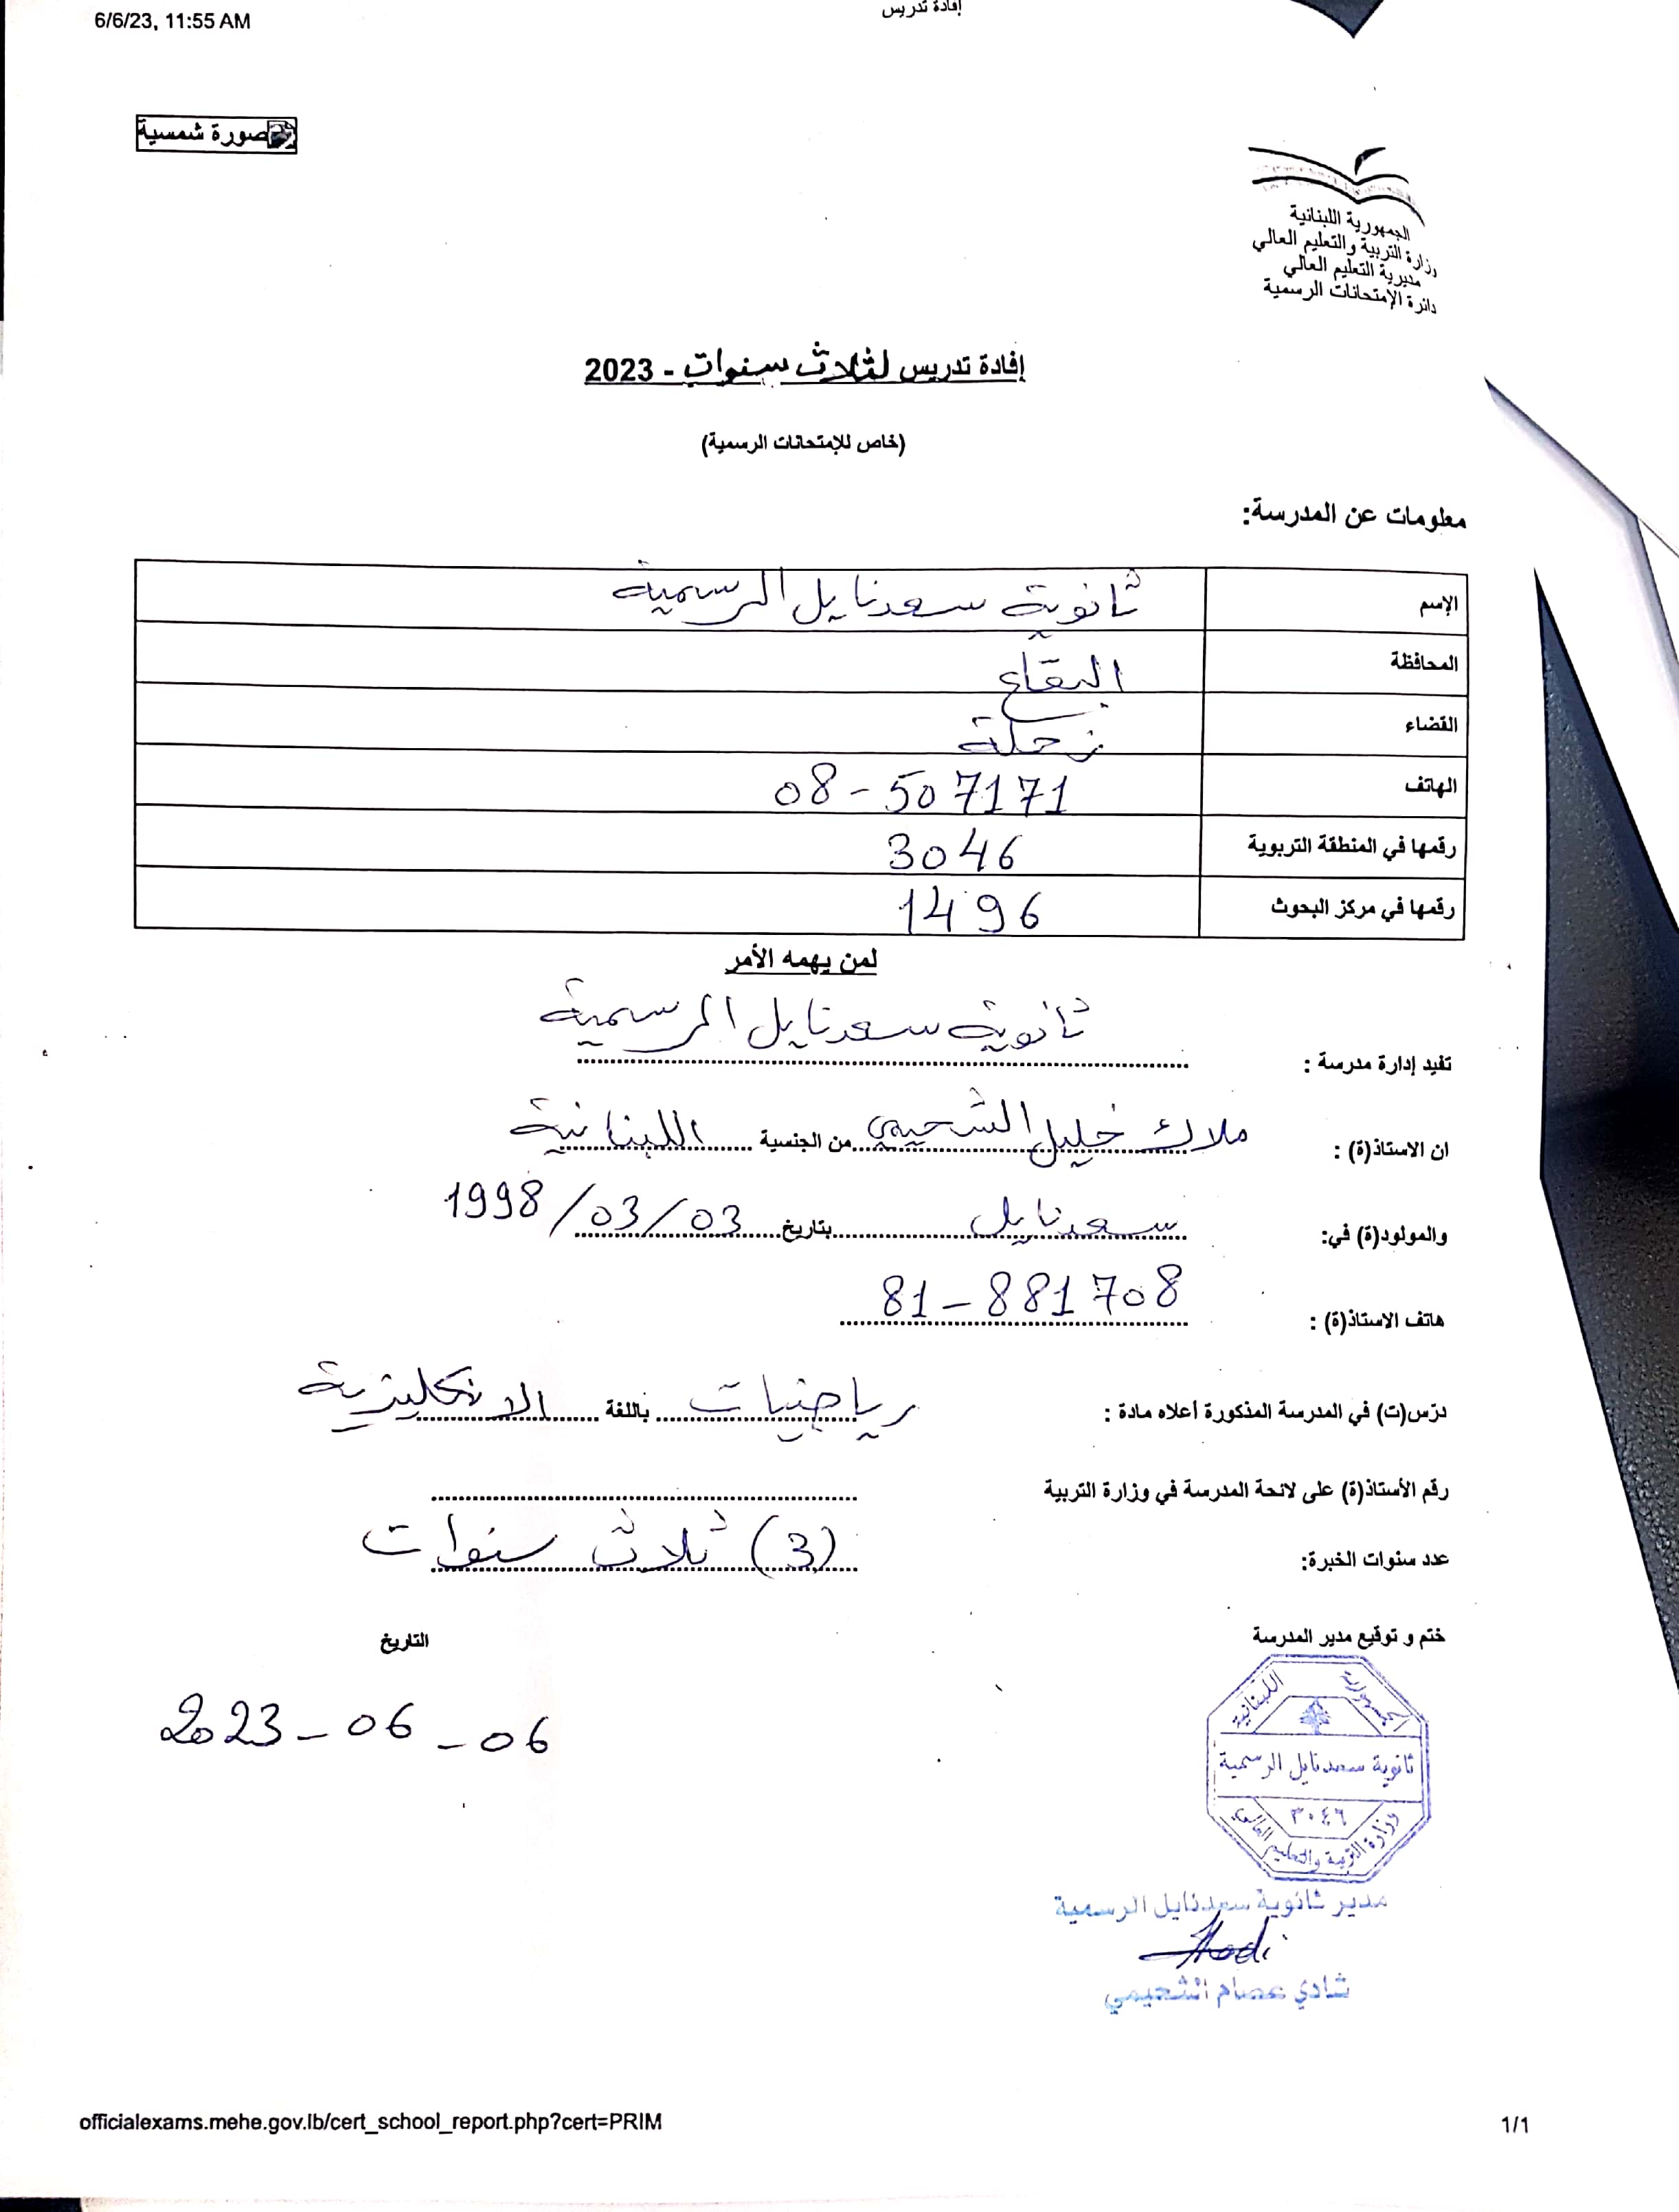 6/6/23, 11:55 AM
إفادة تدريس
صورة شمسية
الجمهورية اللبنانية
وزارة التربية والتعليم العالي
مديرية التعليم العالي
دائرة الإمتحانات الرسمية
إفادة تدريس لثلاث سنوات - 2023
(خاص للإمتحانات الرسمية)
معلومات عن المدرسة:
الإسم ثانوية سعدنايل الرسمية
المحافظة البقاع
القضاء زحلة
الهاتف 08-507171
رقمها في المنطقة التربوية 3046
رقمها في مركز البحوث 1496
لمن يهمه الأمر
تفيد إدارة مدرسة : ثانوية سعدنايل الرسمية
ان الاستاذ(ة) : ملاك خليل الشحيمي من الجنسية اللبنانية
والمولود(ة) في: سعدنايل بتاريخ 03/03/1998
هاتف الاستاذ(ة) : 81-881708
درّس(ت) في المدرسة المذكورة أعلاه مادة : رياضيات باللغة الانكليزية
رقم الأستاذ(ة) على لائحة المدرسة في وزارة التربية
عدد سنوات الخبرة: (3) ثلاث سنوات
ختم و توقيع مدير المدرسة التاريخ
2023-06-06
الجمهورية اللبنانية
ثانوية سعدنايل الرسمية
٣٠٤٦
وزارة التربية والتعليم العالي
مدير ثانوية سعدنايل الرسمية
شادي عصام الشحيمي
officialexams.mehe.gov.lb/cert_school_report.php?cert=PRIM 1/1